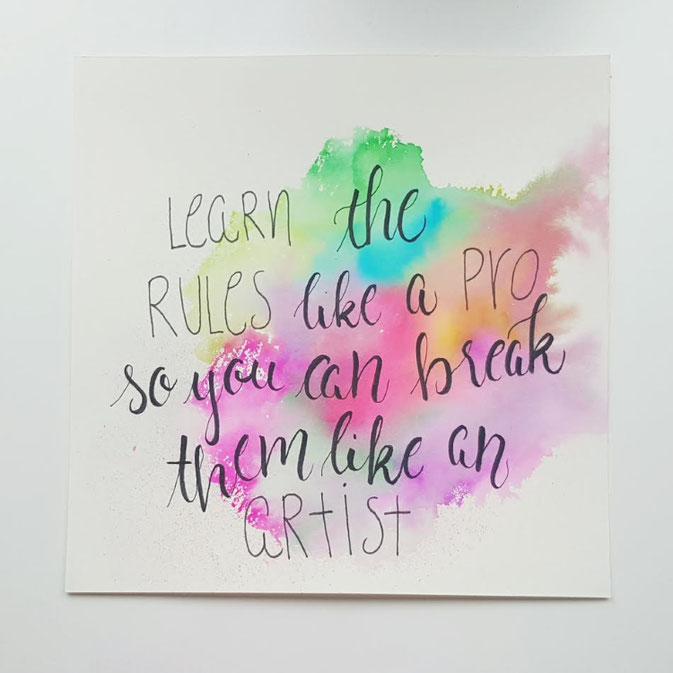 Learn the
RULES like a PRO
so you can break
them like an
aRtist